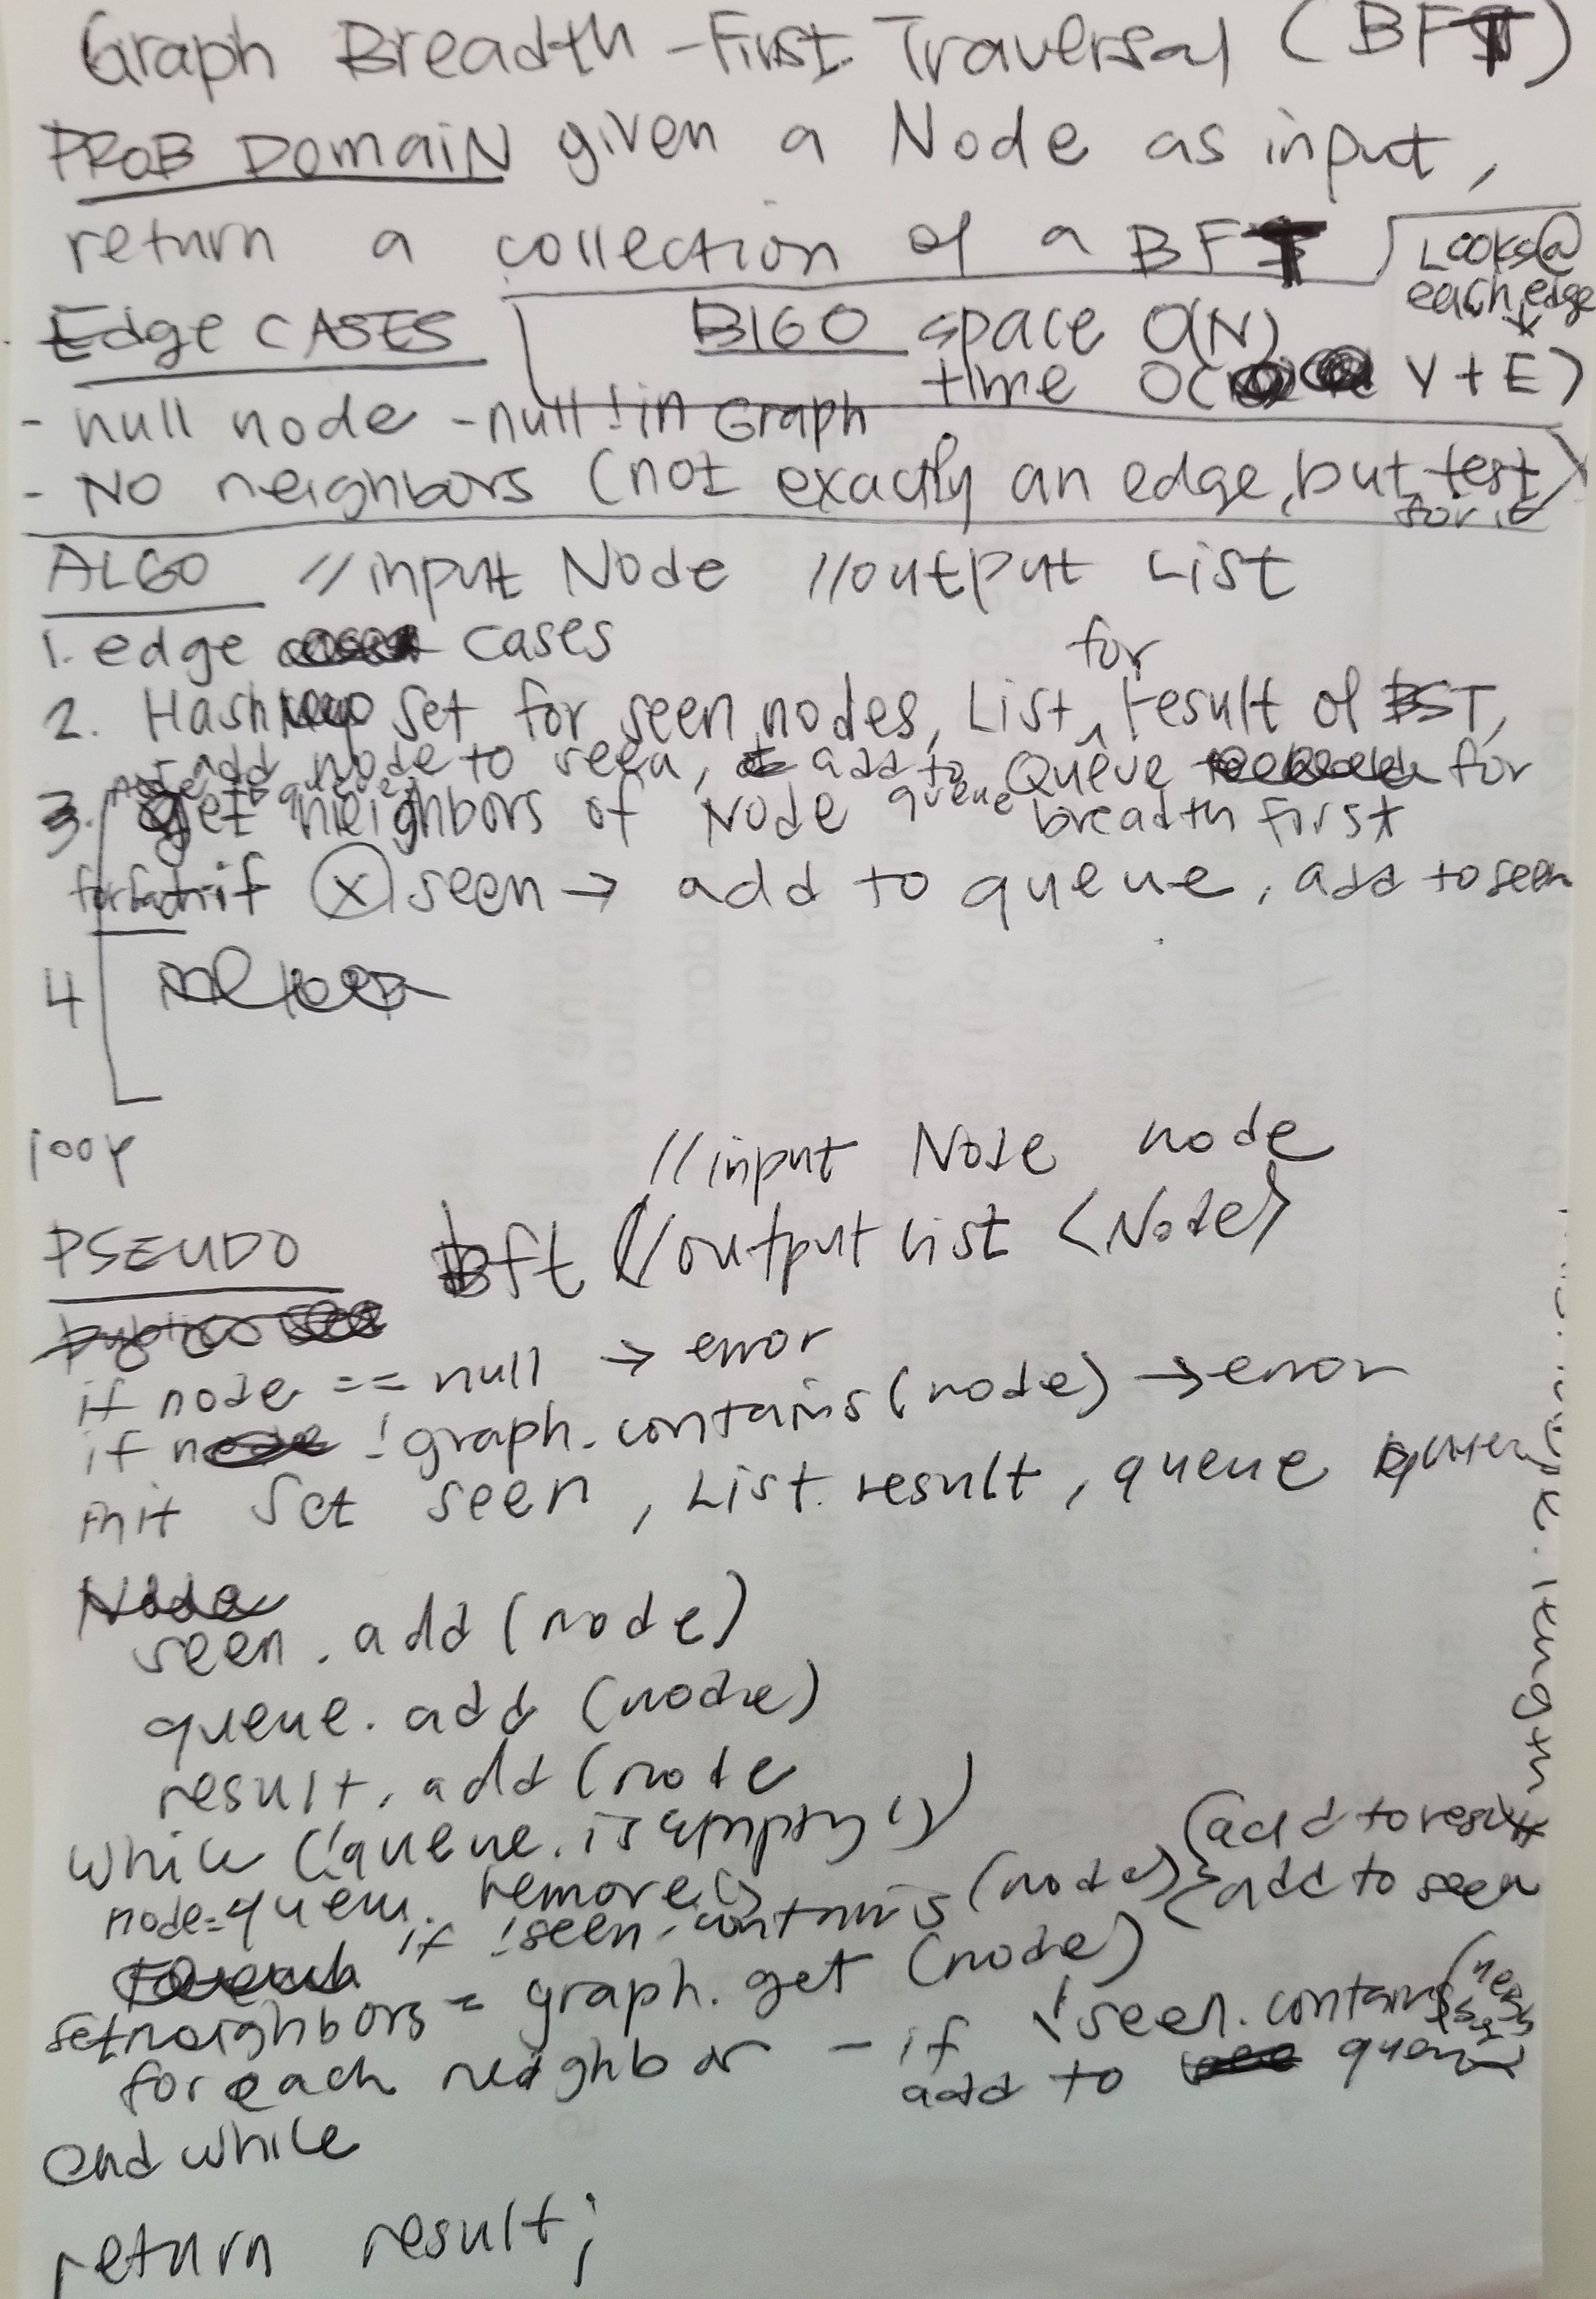 Graph Breadth-First Traversal (BFT)
PROB DOMAIN given a Node as input,
return a collection of a BFT
Looks@
each edge
Edge CASES
BIGO space O(N)
time O( V + E)
- null node - null !in Graph
- No neighbors (not exactly an edge, but test
for it
ALGO //input Node //output List
1. edge cases
for
2. Hash Set for seen nodes, List, result of BST,
add node to seen, add to queue
Queue for
breadth first
3. get neighbors of Node
if (x) seen → add to queue, add to seen
4
loop
//input Node node
PSEUDO bft //output List <Node>
if node == null → error
if !graph.contains(node) → error
init Set seen, List result, queue
seen.add(node)
queue.add(node)
result.add(node
while (!queue.isEmpty())
node=queue.remove()
if !seen.contains(node) {add to result
add to seen
set neighbors = graph.get(node)
for each neighbor - if !seen.contains
add to queue
end while
return result;